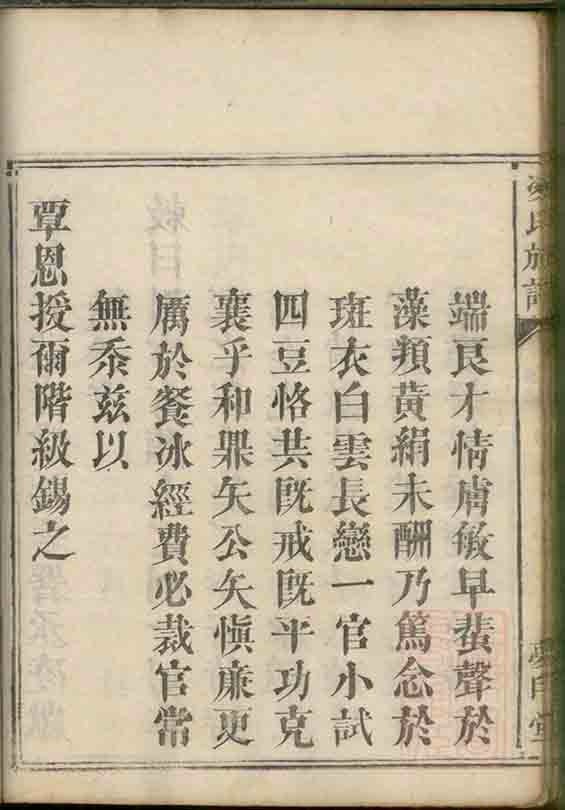 端良才情膚敏早蜚聲於
藻頖黃絹未酬乃篤念於
斑衣白雲長戀一官小試
四豆恪共既戒既平功克
襄乎和鼎矢公矢愼廉更
厲於餐冰經費必裁官常
無忝茲以
覃恩授爾階級錫之